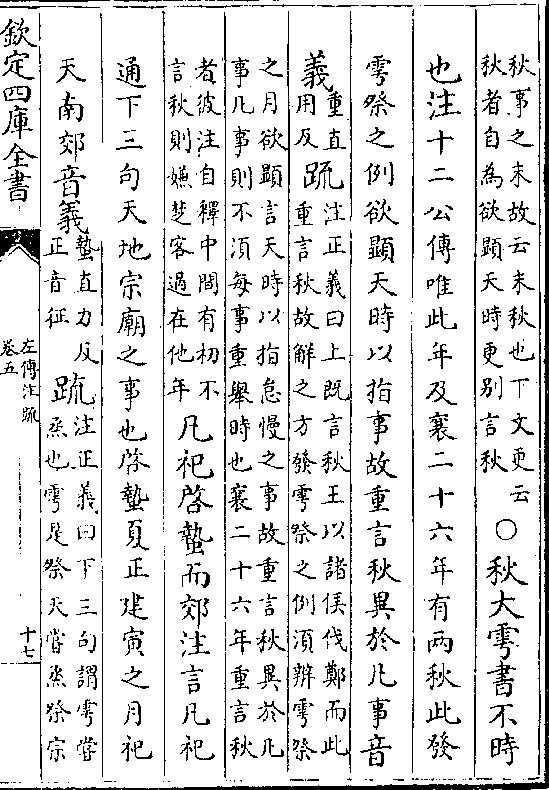 秋事之末故云末秋也下文更云
秋者自為欲顯天時更別言秋
○秋大雩書不時
也注十二公傳唯此年及襄二十六年有兩秋此發
雩祭之例欲顯天時以指事故重言秋異於凡事音
義
重直
用反
疏
注正義曰上既言秋王以諸侯伐鄭而此
重言秋故解之方發雩祭之例須辨雩祭
之月欲顯言天時以指怠慢之事故重言秋異於凡
事凡事則不須每事重舉時也襄二十六年重言秋
者彼注自釋中間有初不
言秋則嫌楚客過在他年
凡祀啓蟄而郊注言凡祀
通下三句天地宗廟之事也啓蟄夏正建寅之月祀
天南郊音義
蟄直力反
正音征
疏
注正義曰下三句謂雩嘗
烝也雩是祭天嘗烝祭宗
欽定四庫全書
左傳注疏
卷五
十七